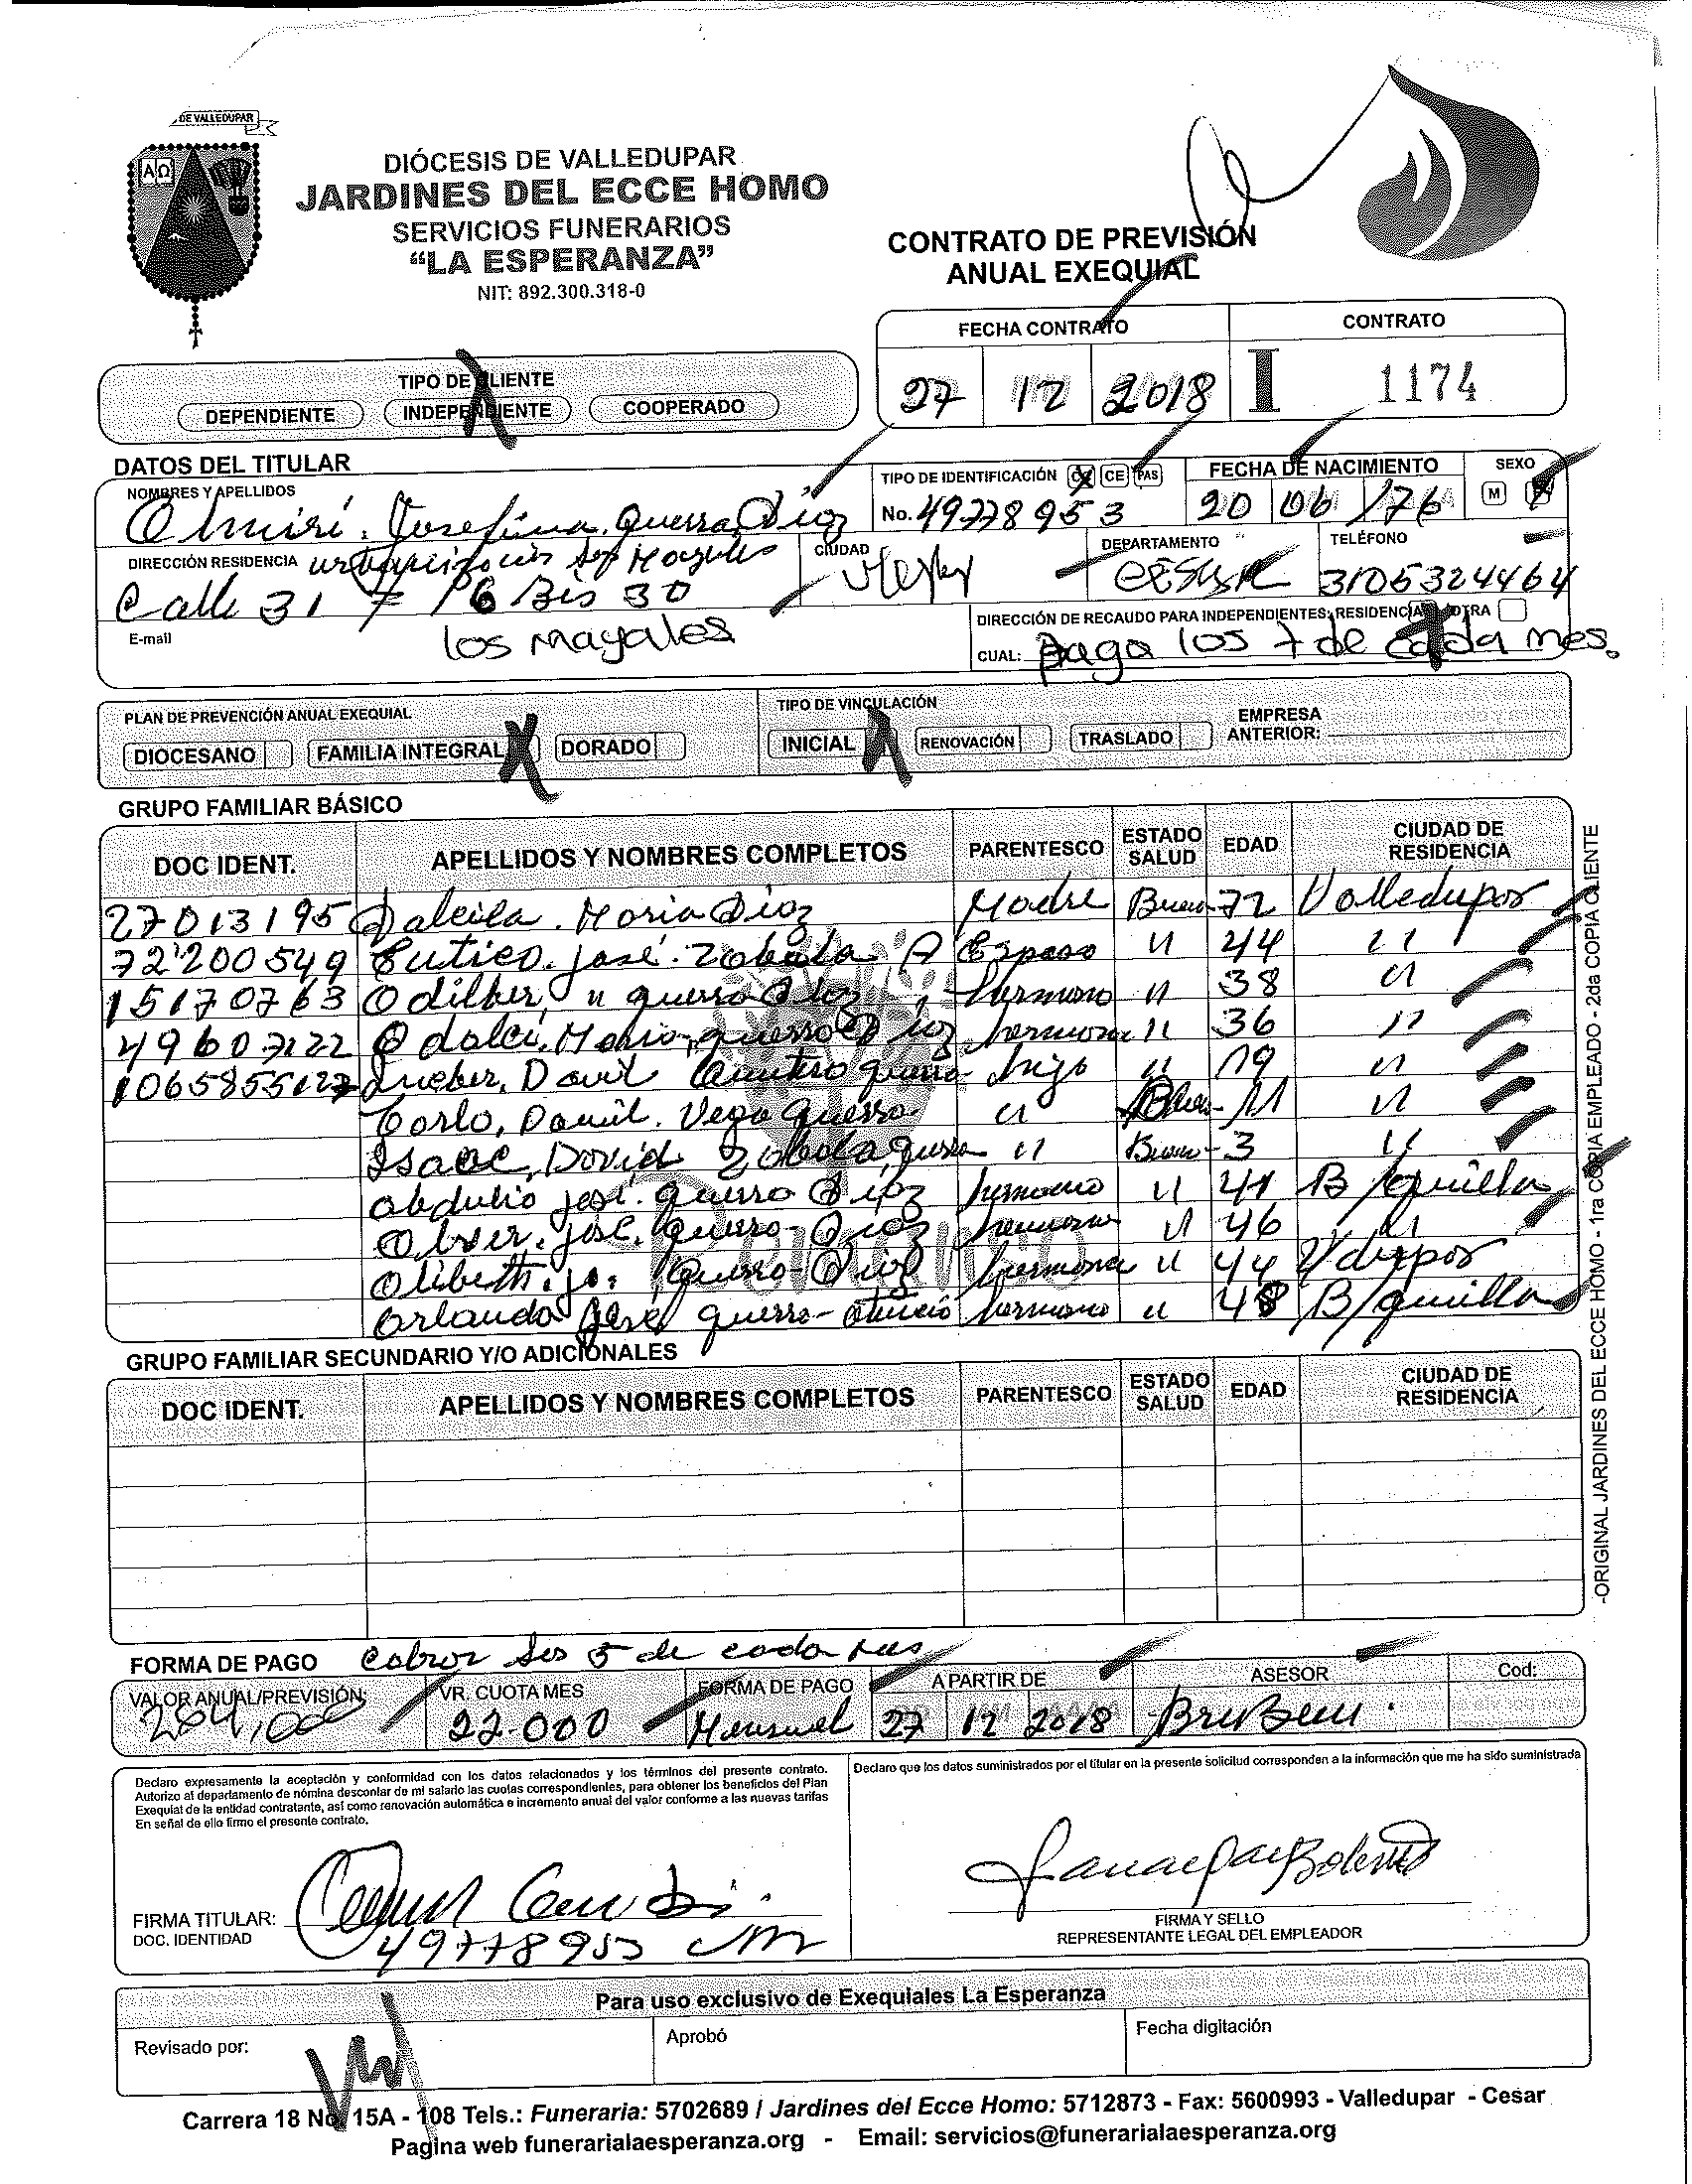 DE VALLEDUPAR
ΑΩ
DIÓCESIS DE VALLEDUPAR
JARDINES DEL ECCE HOMO
SERVICIOS FUNERARIOS
“LA ESPERANZA”
NIT: 892.300.318-0
CONTRATO DE PREVISIÓN
ANUAL EXEQUIAL
FECHA CONTRATO CONTRATO
27 12 2018 I 1174
TIPO DE CLIENTE
DEPENDIENTE INDEPENDIENTE X COOPERADO
DATOS DEL TITULAR
NOMBRES Y APELLIDOS TIPO DE IDENTIFICACIÓN CC CE PAS FECHA DE NACIMIENTO SEXO
Josefina Guerra Díaz No. 49778953 20 06 /76 M
DIRECCIÓN RESIDENCIA CIUDAD DEPARTAMENTO TELÉFONO
Calle 31 # 16 Bis 30 Cesar 3105324464
E-mail los Mayales
DIRECCIÓN DE RECAUDO PARA INDEPENDIENTES: RESIDENCIA X OTRA
CUAL: Paga los 7 de cada mes.
PLAN DE PREVENCIÓN ANUAL EXEQUIAL TIPO DE VINCULACIÓN
DIOCESANO FAMILIA INTEGRAL X DORADO INICIAL X RENOVACIÓN TRASLADO EMPRESA ANTERIOR:
GRUPO FAMILIAR BÁSICO
DOC IDENT. APELLIDOS Y NOMBRES COMPLETOS PARENTESCO ESTADO SALUD EDAD CIUDAD DE RESIDENCIA
27013195 Dalcila Maria Díaz Madre Buen 72 Valledupar
72'200549 Eutico José Zabala A Esposo " 44 "
15170763 Odilber " guerra Diaz hermano " 38 "
49607122 Odalci Maria guerra Diaz hermana " 36 "
1065855127 David Quintero guerra hijo " 19 "
Carlo, Daniel Vega guerra " Buen 11 "
Isaac David Zabala guerra " Buen 3 "
abdulio josé guerra Diaz hermano " 41 B/quilla
Olver José guerra Diaz hermano " 46 "
Olibeth jo. guerra Diaz hermana " 44 V/dupar
Orlando José guerra hermano " 48 B/quilla
GRUPO FAMILIAR SECUNDARIO Y/O ADICIONALES
DOC IDENT. APELLIDOS Y NOMBRES COMPLETOS PARENTESCO ESTADO SALUD EDAD CIUDAD DE RESIDENCIA
-ORIGINAL JARDINES DEL ECCE HOMO - 1ra COPIA EMPLEADO - 2da COPIA CLIENTE
FORMA DE PAGO Cobrar los 5 de cada mes
VALOR ANUAL/PREVISIÓN: VR. CUOTA MES FORMA DE PAGO A PARTIR DE ASESOR Cod:
264,000 22.000 Mensual 27 12 2018
Declaro expresamente la aceptación y conformidad con los datos relacionados y los términos del presente contrato.
Autorizo al departamento de nómina descontar de mi salario las cuotas correspondientes, para obtener los beneficios del Plan
Exequial de la entidad contratante, así como renovación automática e incremento anual del valor conforme a las nuevas tarifas
En señal de ello firmo el presente contrato.
Declaro que los datos suministrados por el titular en la presente solicitud corresponden a la información que me ha sido suministrada
FIRMA TITULAR:
DOC. IDENTIDAD 49778953
FIRMA Y SELLO
REPRESENTANTE LEGAL DEL EMPLEADOR
Para uso exclusivo de Exequiales La Esperanza
Revisado por: Aprobó Fecha digitación
Carrera 18 No. 15A - 108 Tels.: Funeraria: 5702689 / Jardines del Ecce Homo: 5712873 - Fax: 5600993 - Valledupar - Cesar
Pagina web funerarialaesperanza.org - Email: servicios@funerarialaesperanza.org